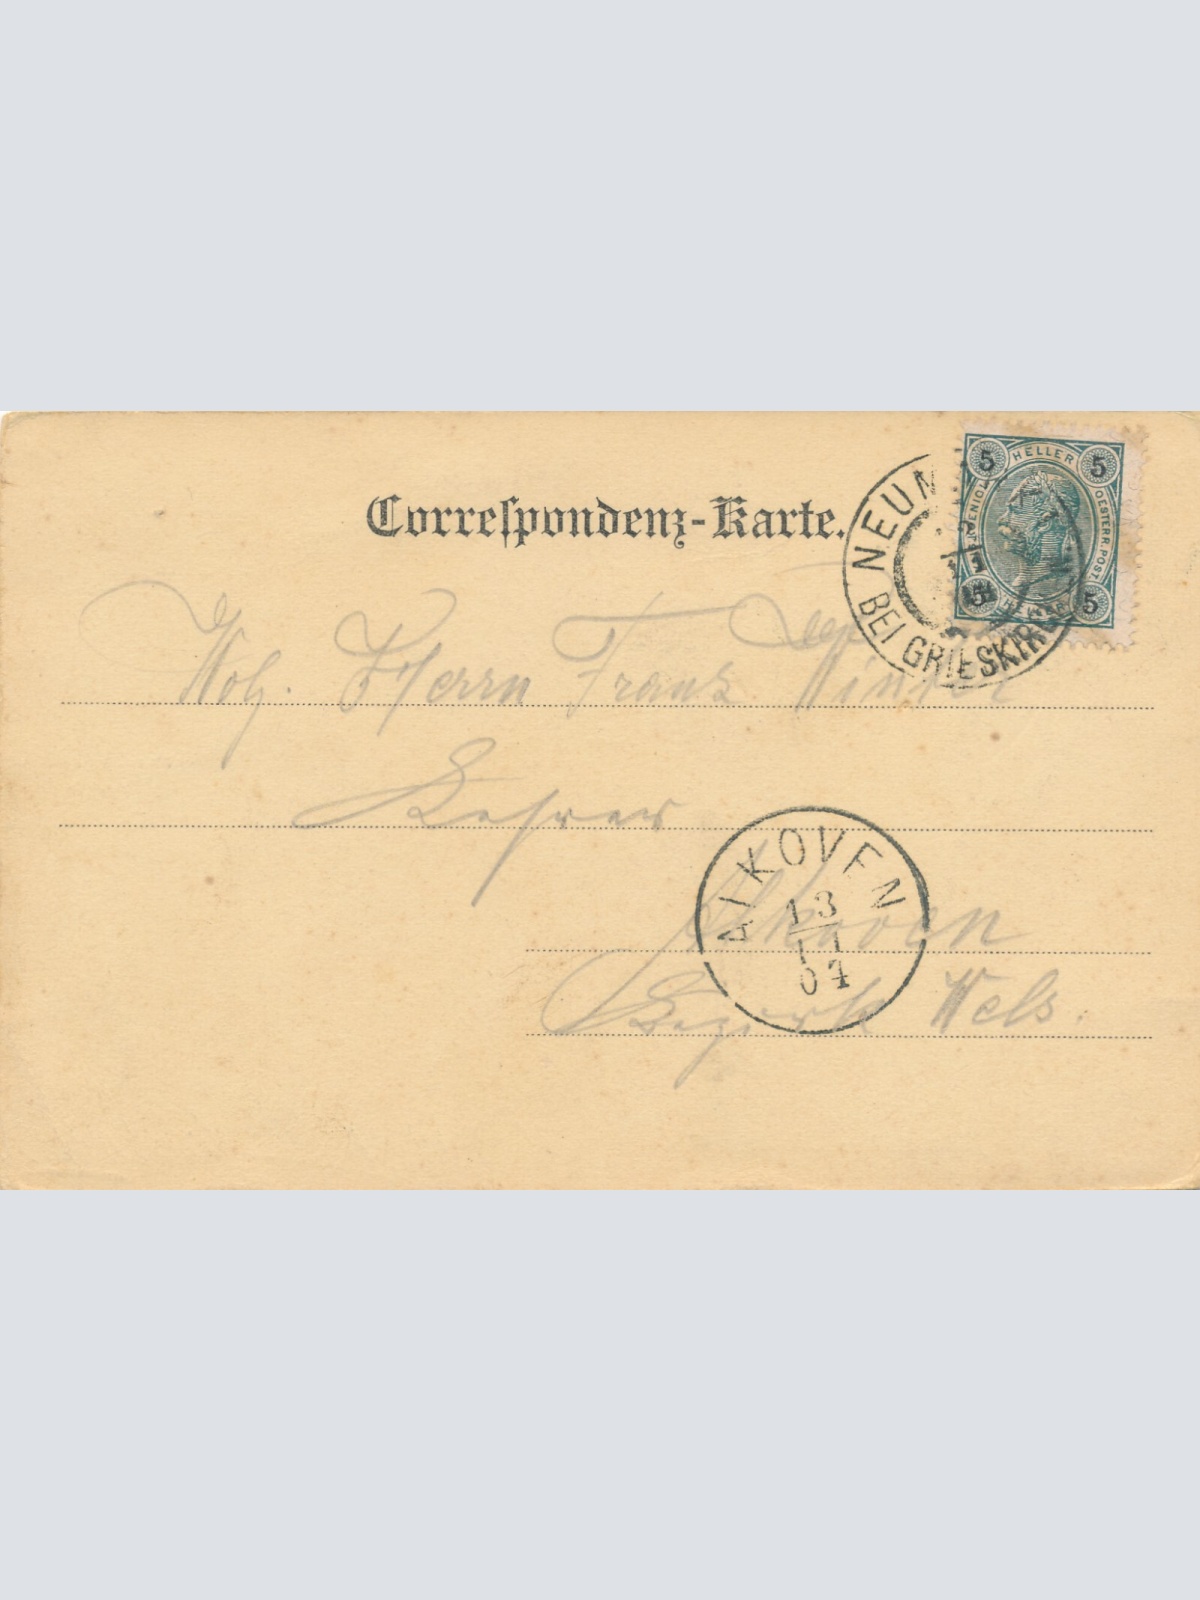 Correspondenz-Karte.
5 HELLER 5
OESTERR. POST.
5 5
NEUM
BEI GRIESKIR
Wolg. Herrn Franz
Lehrer
Alkoven
Bezirk Wels.
ALKOVEN
13
11
04